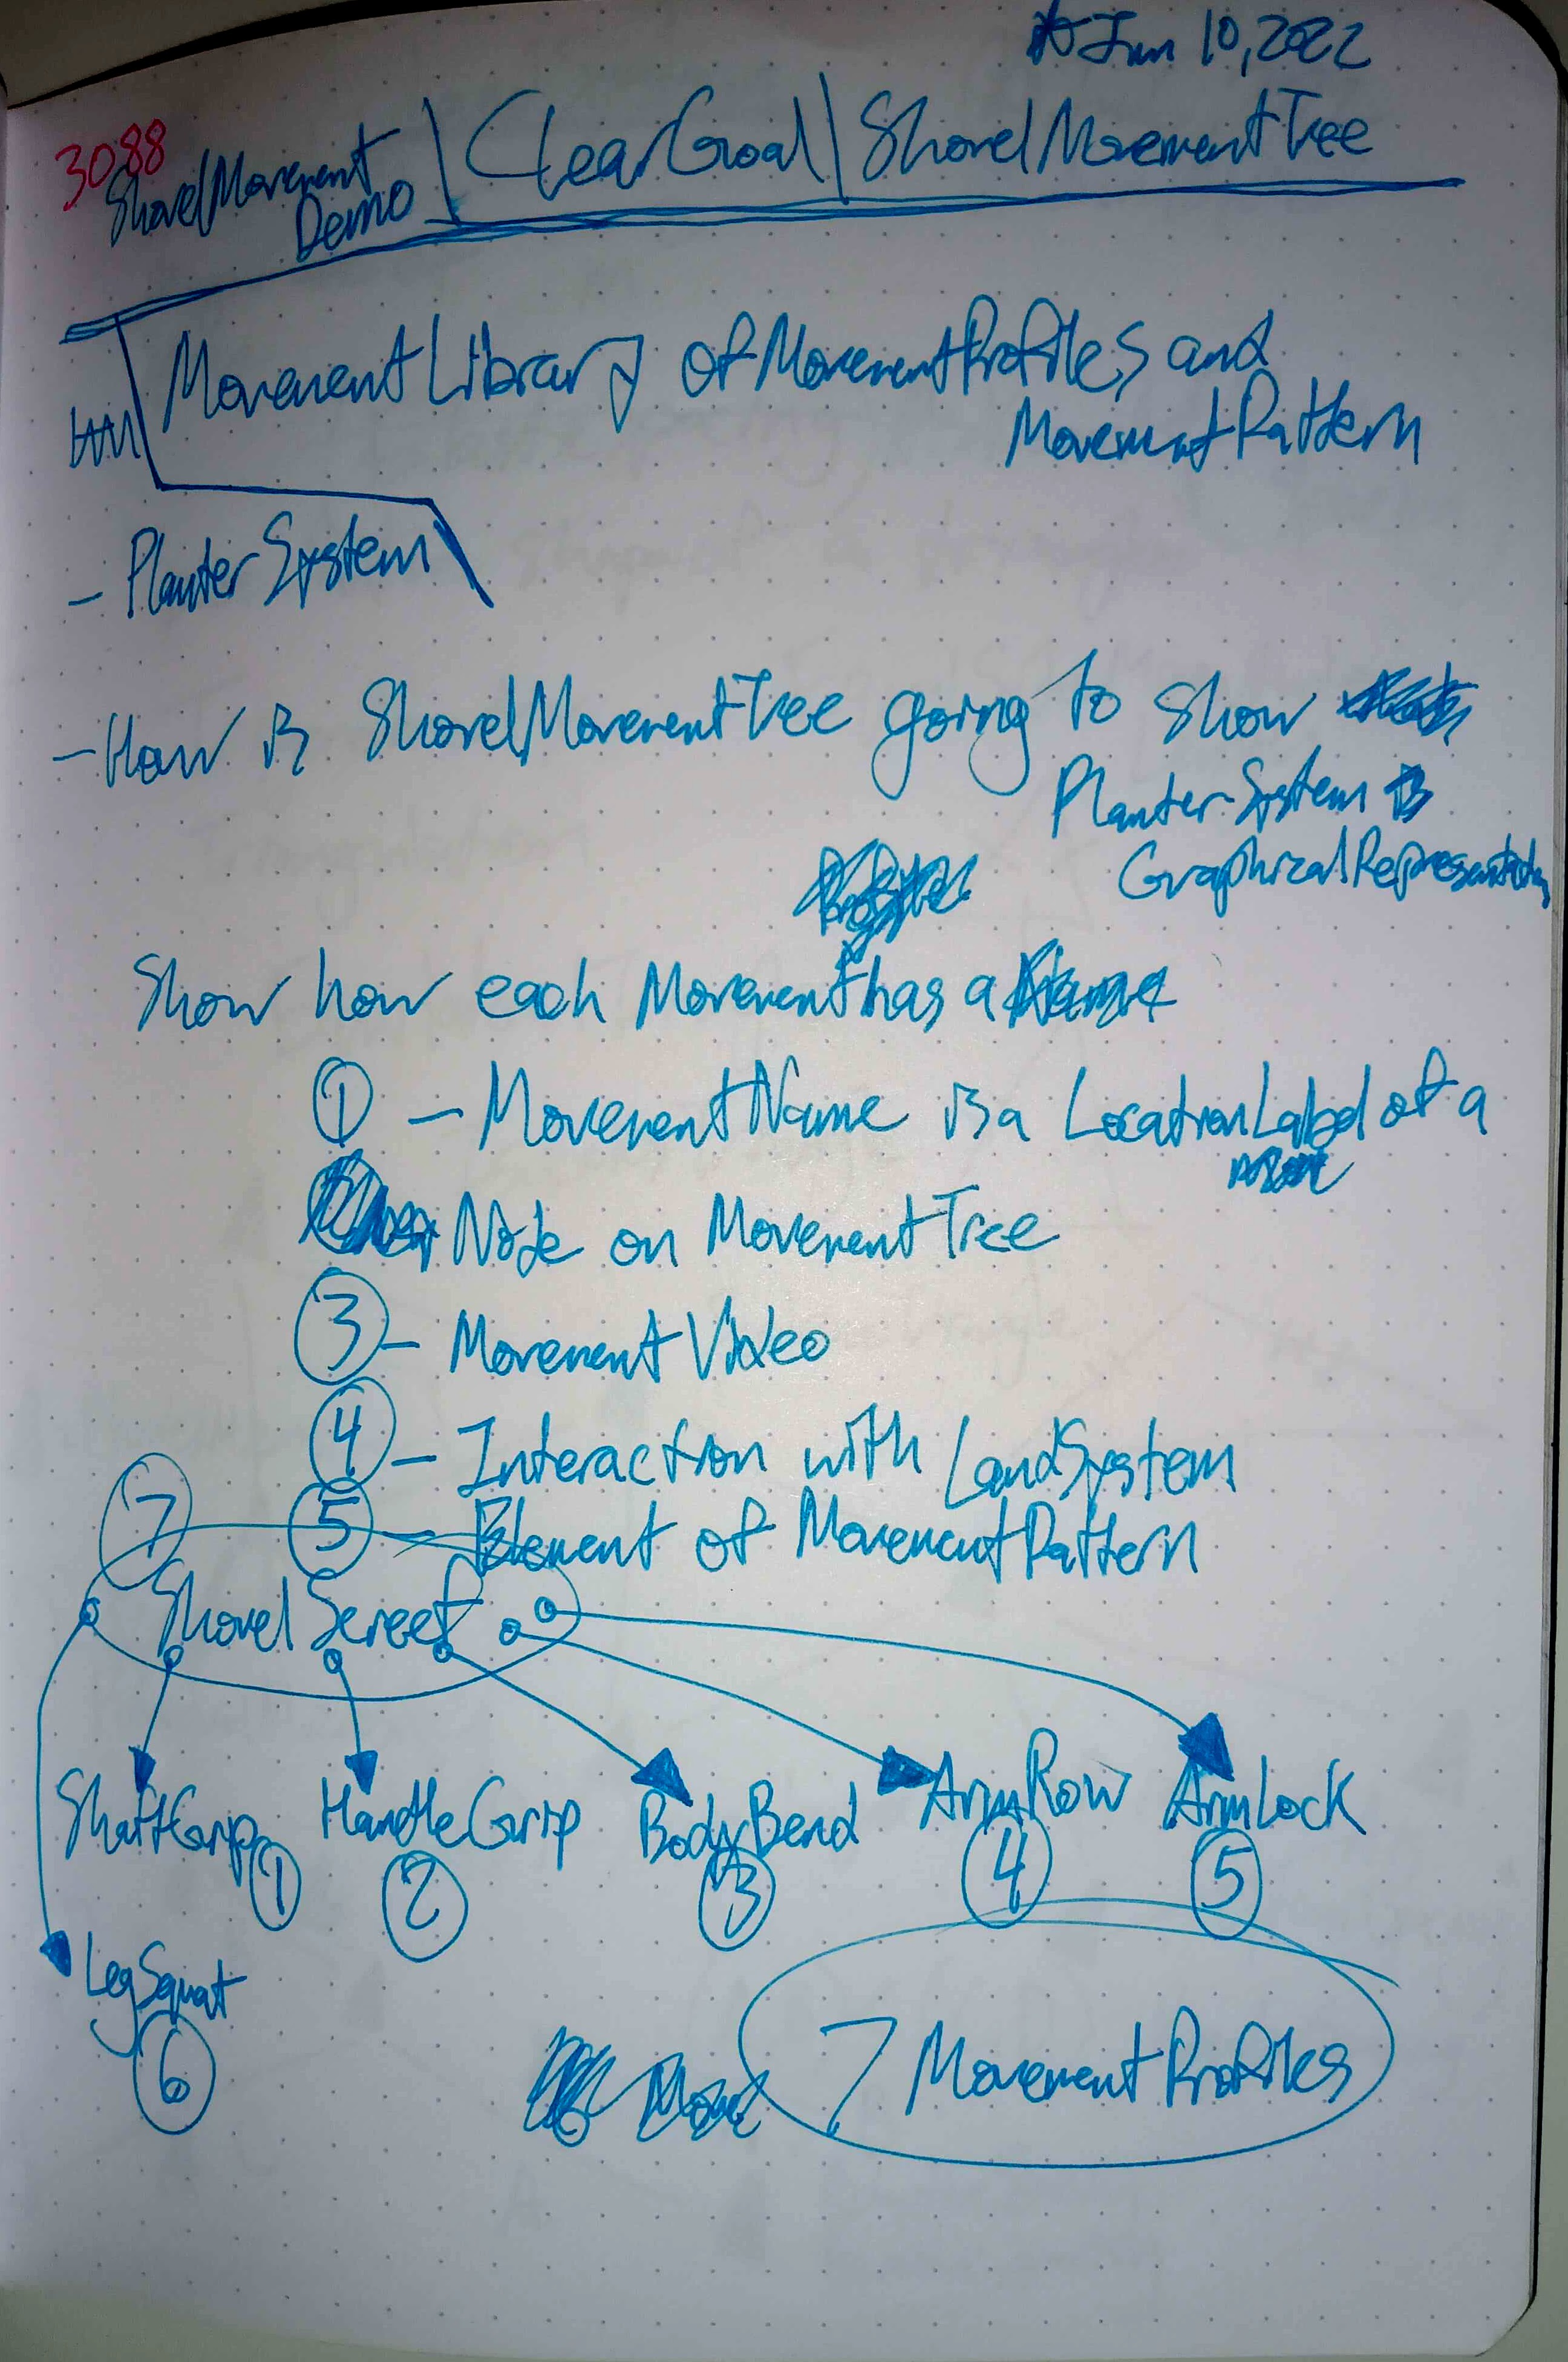 Jun 10, 2022
3088
ShovelMovement Demo | ClearGoal | ShovelMovementTree
MovementLibrary of MovementProfiles and
MovementPattern
- PlanterSystem
- How is ShovelMovementTree going to show
PlanterSystem
GraphicalRepresentation
Show how each Movement has a
① - MovementName is a LocationLabel of a
Node on MovementTree
③ - MovementVideo
④ - Interaction with LandSystem
⑤ - Element of MovementPattern
⑦
Shovel
ShaftGrip ① HandleGrip ② BodyBend ③ ArmRow ④ ArmLock ⑤
LegSquat
⑥
7 MovementProfiles